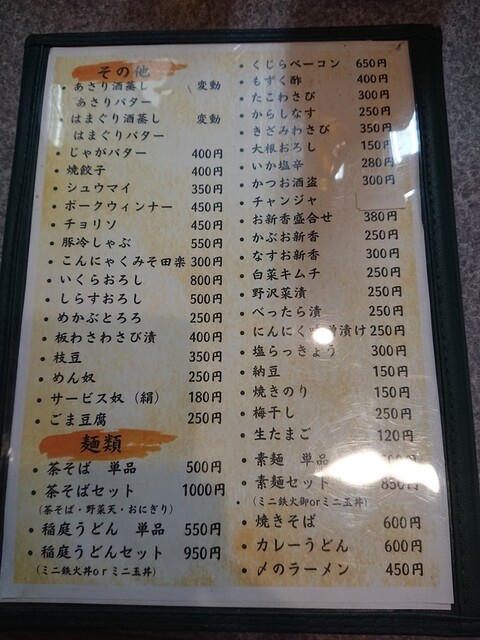 その他
・あさり酒蒸し 変動
あさりバター
・はまぐり酒蒸し 変動
はまぐりバター
・じゃがバター 400円
・焼餃子 400円
・シュウマイ 350円
・ポークウィンナー 450円
・チョリソ 450円
・豚冷しゃぶ 550円
・こんにゃくみそ田楽 300円
・いくらおろし 800円
・しらすおろし 500円
・めかぶとろろ 250円
・板わさわさび漬 400円
・枝豆 350円
・めん奴 250円
・サービス奴（絹） 180円
・ごま豆腐 250円
麺類
・茶そば 単品 500円
・茶そばセット 1000円
(茶そば・野菜天・おにぎり)
・稲庭うどん 単品 550円
・稲庭うどんセット 950円
(ミニ鉄火丼orミニ玉丼)
・くじらベーコン 650円
・もずく酢 400円
・たこわさび 300円
・からしなす 250円
・きざみわさび 350円
・大根おろし 150円
・いか塩辛 280円
・かつお酒盗 300円
・チャンジャ
・お新香盛合せ 380円
・かぶお新香 250円
・なすお新香 300円
・白菜キムチ 250円
・野沢菜漬 250円
・べったら漬 250円
・にんにく味噌漬け 250円
・塩らっきょう 300円
・納豆 150円
・焼きのり 150円
・梅干し 250円
・生たまご 120円
・素麺 単品
・素麺セット 850円
・(ミニ鉄火御orミニ玉丼)
・焼きそば 600円
・カレーうどん 600円
・〆のラーメン 450円